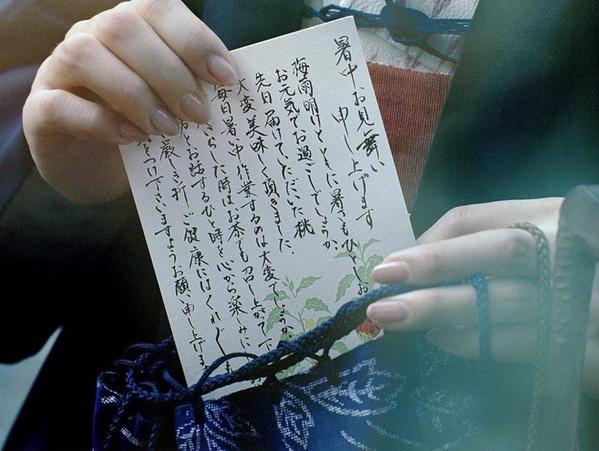 暑中お見舞い
申し上げます
梅雨明けとともに暑さもひとしお
お元気でお過ごしでしょうか。
先日届けていただいた桃
大変美味しく頂きました。
毎日暑い中作業するのは大変でしょうか
らした時はお茶でも召し上がって
とお話するひと時を心から楽しみに
厳しき折、ご健康にはくれぐれも
をつけ下さいますようお願い申し上げま